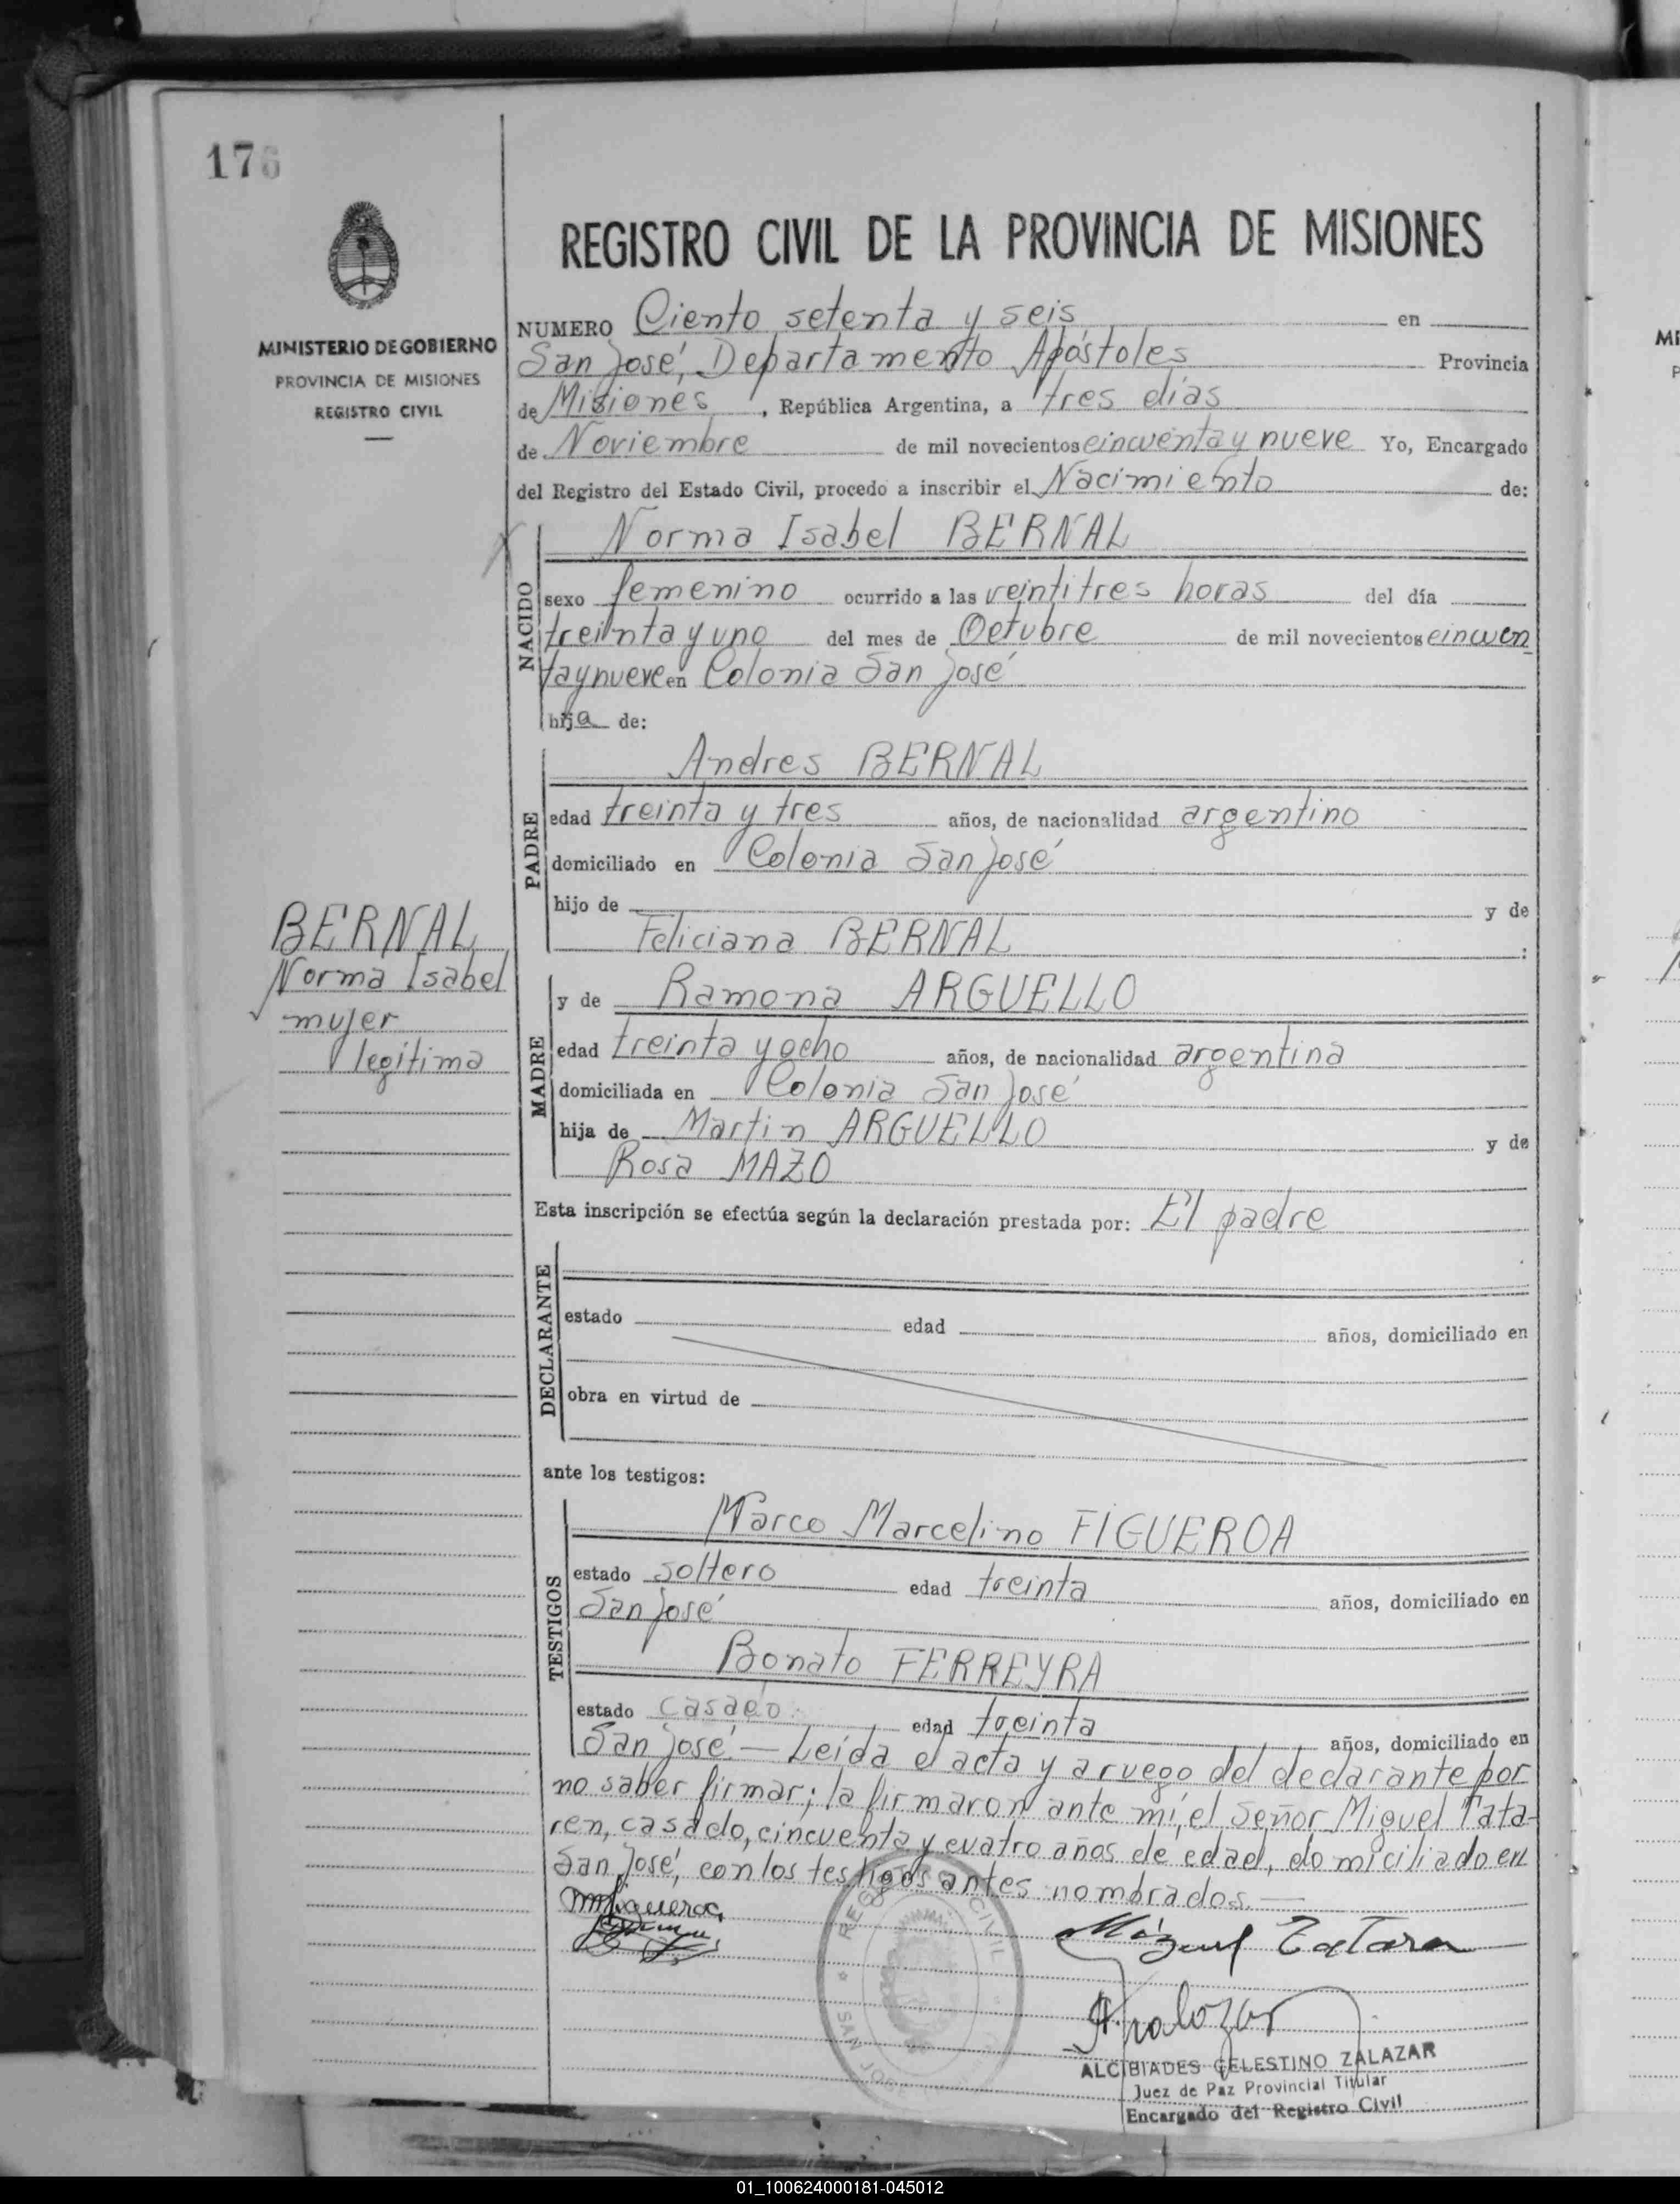 176
REGISTRO CIVIL DE LA PROVINCIA DE MISIONES
MINISTERIO DE GOBIERNO
PROVINCIA DE MISIONES
REGISTRO CIVIL
NUMERO Ciento setenta y seis en
San José, Departamento Apóstoles Provincia
de Misiones, República Argentina, a tres días
de Noviembre de mil novecientos cincuenta y nueve Yo, Encargado
del Registro del Estado Civil, procedo a inscribir el Nacimiento de:
NACIDO
Norma Isabel BERNAL
sexo femenino ocurrido a las veintitres horas del día
treinta y uno del mes de Octubre de mil novecientos cincuen
ta y nueve en Colonia San José
hija de:
PADRE
Andres BERNAL
edad treinta y tres años, de nacionalidad argentino
domiciliado en Colonia San José
hijo de y de
Feliciana BERNAL :
BERNAL
Norma Isabel
mujer
legítima
MADRE
y de Ramona ARGUELLO
edad treinta y ocho años, de nacionalidad argentina
domiciliada en Colonia San José
hija de Martin ARGUELLO y de
Rosa MAZO
Esta inscripción se efectúa según la declaración prestada por: El padre
DECLARANTE
estado edad años, domiciliado en
obra en virtud de
ante los testigos:
TESTIGOS
Marco Marcelino FIGUEROA
estado soltero edad treinta años, domiciliado en
San José
Bonato FERREYRA
estado casado edad treinta años, domiciliado en
San José.— Leída el acta y a ruego del declarante por
no saber firmar; la firmaron ante mí, el señor Miguel Tata-
ren, casado, cincuenta y cuatro años de edad, domiciliado en
San José, con los testigos antes nombrados.—
MMFigueroa
Miguel Tataren
REGISTRO CIVIL
SAN JOSE
AZalazar
ALCIBIADES CELESTINO ZALAZAR
Juez de Paz Provincial Titular
Encargado del Registro Civil
01_100624000181-045012